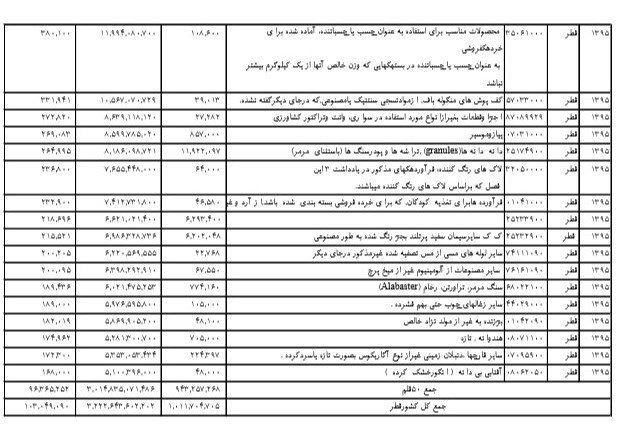 ۱۳۹۵ قطر ۳۵۰۶۱۰۰۰ محصولات مناسب برای استفاده به عنوان چسب یا چسباننده، آماده شده برا ی ۱۰۸,۶۰۰ ۱۱,۹۹۴,۰۸۰,۷۰۰ ۳۸۰,۱۰۰
خردهکفروشی
به عنوان چسب یا چسباننده در بستهکهایی که وزن خالص آنها از یک کیلوگرم بیشتر
نباشد
۱۳۹۵ قطر ۵۷۰۳۳۰۰۰ کف پوش های منگوله باف، ا زموادنسجی سنتتیک یامصنوعی،که درجای دیگرکفته نشده. ۳۹,۰۱۳ ۱۰,۵۶۷,۰۷۰,۷۲۹ ۳۳۱,۹۴۱
۱۳۹۵ قطر ۸۷۰۸۹۹۲۹ اجزا وقطعات بغیرازا نواع مورد استفاده در سوا ری، وانت وتراکتور کشاورزی ۲۷,۲۸۲ ۸,۶۳۹,۱۱۸,۱۲۰ ۲۷۲,۸۲۰
۱۳۹۵ قطر ۰۷۰۳۱۰۰۰ پیازوموسیر ۸۵۷,۰۰۰ ۸,۵۹۹,۷۸۵,۰۲۰ ۲۶۹,۰۸۳
۱۳۹۵ قطر ۲۵۱۷۴۹۰۰ دا نه دا نه ها(granules) ،ترا شه ها و پودرسنگ ها (باستثنای مرمر) ۱۱,۹۲۲,۰۹۷ ۸,۱۸۶,۰۹۸,۷۲۱ ۲۶۴,۹۹۵
۱۳۹۵ قطر ۳۲۰۵۰۰۰۰ لاک های رنگ کننده، فرآوردهکهای مذکور در یادداشت ۳ این ۶۴,۰۰۰ ۷,۶۵۵,۴۴۸,۰۰۰ ۲۳۶,۸۰۰
فصل که براساس لاک های رنگ کننده میباشند.
۱۳۹۵ قطر ۰۱۰۴۱۰۰۰ فرآورده هابرا ی تغذیه کودکان، که برا ی خرده فروشی بسته بندی شده باشد،ا ز آرد و غیر ۴۶,۵۸۰ ۷,۴۱۲,۷۳۱,۸۰۰ ۲۳۲,۹۰۰
۱۳۹۵ قطر ۲۵۲۳۳۹۰۰ ۶,۲۹۳,۴۰۰ ۶,۶۲۱,۰۲۱,۴۰۰ ۲۱۸,۶۹۶
۱۳۹۵ قطر ۲۵۲۳۲۹۰۰ ک ک سایرسیمان سفید پرتلند بجز رنگ شده به طور مصنوعی ۶,۲۰۲,۰۴۸ ۶,۹۸۶,۳۲۸,۷۳۶ ۲۱۵,۵۲۱
۱۳۹۵ قطر ۷۴۱۱۱۰۹۰ سایر لوله های مسی از مس تصفیه شده غیرمذکور درجای دیگر ۲۲,۷۶۸ ۶,۲۲۰,۵۶۹,۵۵۵ ۲۰۰,۲۰۵
۱۳۹۵ قطر ۷۶۱۶۱۰۹۰ سایر مصنوعات از آلومینیوم غیر از میخ پرچ ۶۷,۵۵۰ ۶,۳۹۸,۲۹۲,۹۱۰ ۲۰۰,۰۹۵
۱۳۹۵ قطر ۶۸۰۲۲۱۰۰ سنگ مرمر، تراورتن، رخام (Alabaster) ۷۷۴,۱۶۰ ۶,۰۲۱,۴۷۵,۲۵۳ ۱۸۹,۴۳۶
۱۳۹۵ قطر ۴۴۰۲۹۰۰۰ سایر زغالهای چوب حتی بهم فشرده . ۱۰۵,۰۰۰ ۵,۹۷۶,۵۹۵,۸۰۰ ۱۸۹,۰۰۰
۱۳۹۵ قطر ۰۱۰۴۲۰۹۰ بززنده به غیر از مولد نژاد خالص ۴۸,۱۰۰ ۵,۸۶۹,۹۰۵,۲۰۰ ۱۸۲,۰۱۹
۱۳۹۵ قطر ۰۸۰۷۱۱۰۰ هندوا نه ، تازه ۷۰۵,۰۰۰ ۵,۲۸۱,۳۰۰,۷۰۰ ۱۷۴,۹۶۲
۱۳۹۵ قطر ۰۷۰۹۵۹۰۰ سایر قارچها،دنبلان زمینی غیراز نوع آگاریکوس بصورت تازه یاسردکرده . ۲۲۴,۳۹۷ ۵,۳۵۳,۰۵۳,۴۳۴ ۱۷۲,۳۰۰
۱۳۹۵ قطر ۰۸۰۶۲۰۵۰ آفتابی بی دا نه (ا نگورخشک کرده ) ۴۸,۰۰۰ ۵,۱۰۰,۳۹۶,۰۰۰ ۱۶۸,۰۰۰
جمع ۵۰قلم ۹۴۳,۲۵۷,۲۶۸ ۳,۰۱۴,۸۳۵,۰۷۱,۴۸۶ ۹۶,۳۶۵,۲۵۲
جمع کل کشورقطر ۱,۰۱۱,۷۰۴,۷۰۵ ۳,۲۲۲,۶۴۳,۶۰۲,۲۰۲ ۱۰۳,۰۴۹,۰۹۰